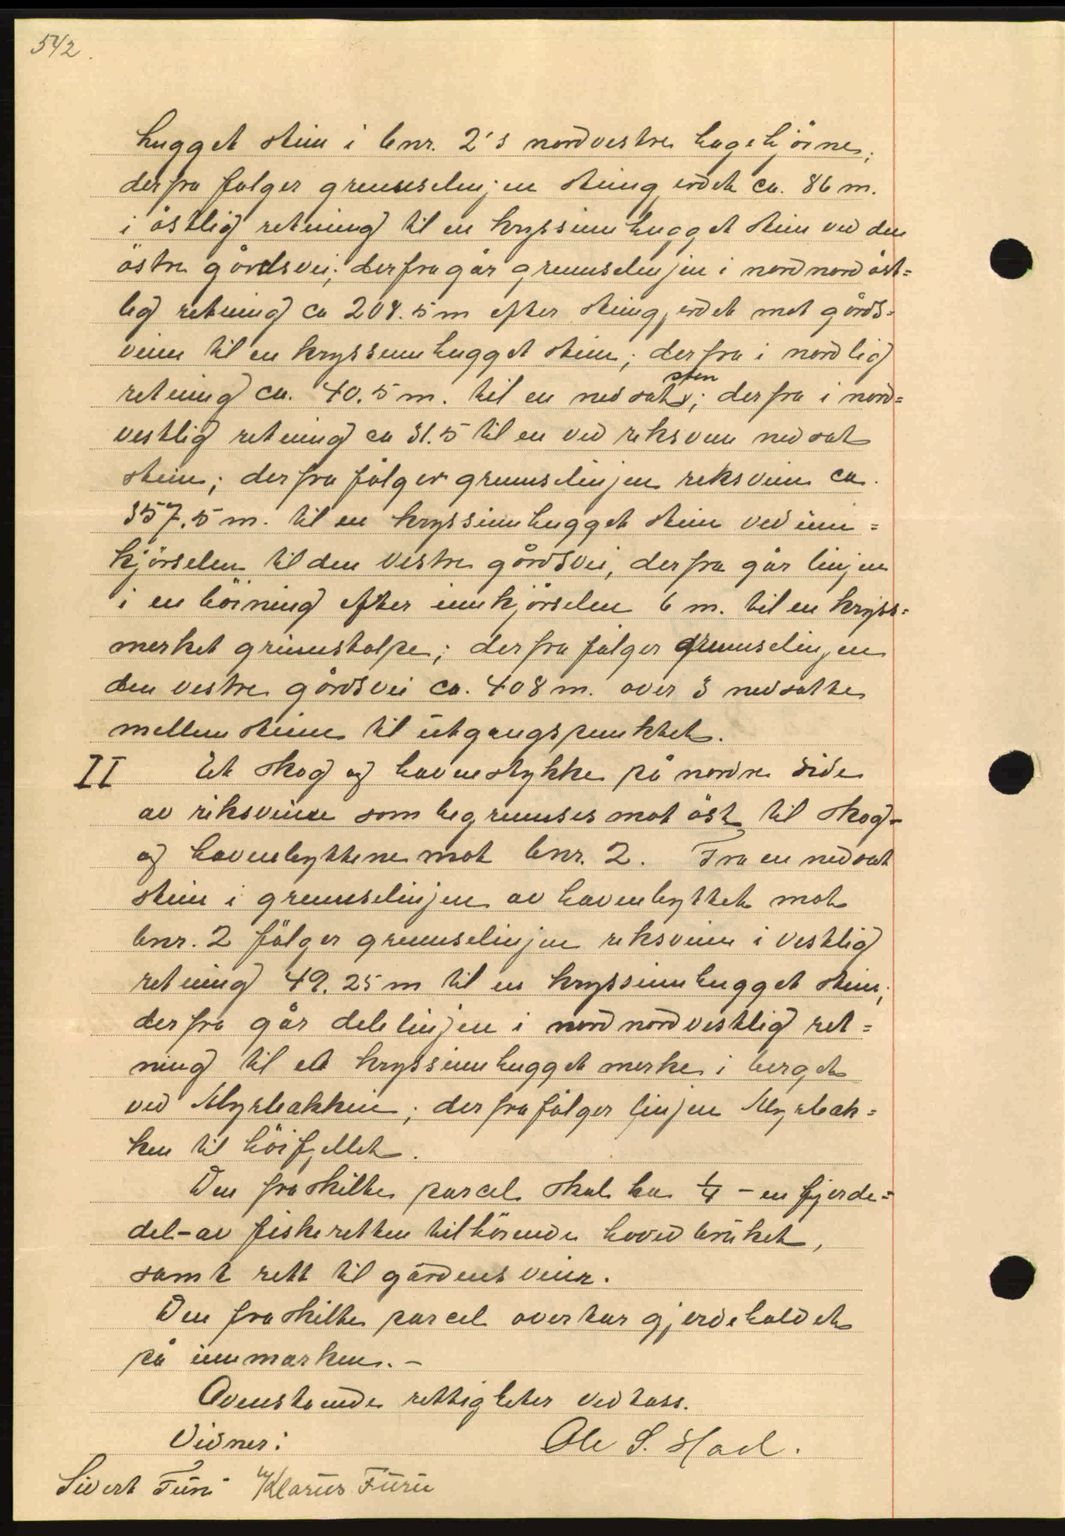 542.
hugget stein i bnr. 2's nordvestre hagehjörne;
derfra følger grenselinjen steingjerdet ca. 86 m.
i östlig retning til en kryssinnhugget stein ved den
östre gårdsvei; derfra går grenselinjen i nordnordöst=
lig retning ca 208.5 m efter steingjerdet mot gårds-
veien til en kryssinnhugget stein; derfra i nordlig
retning ca. 40.5 m. til en nedsatt sten; derfra i nord=
vestlig retning ca 31.5 til en ved riksveien nedsatt
stein; derfra fölger grenselinjen riksveien ca.
357.5 m. til en kryssinnhugget stein ved inn=
kjörselen til den vestre gårdsvei, derfra går linjen
i en böining efter innkjörselen 6 m. til en kryss=
merket grinnstolpe; derfra fölger grenselinjen
den vestre gårdsvei ca. 408 m. over 3 nedsatte
mellemsteine til utgangspunktet.
II Et skog og havnestykke på nordre side
av riksveien som begrenses mot öst til skog-
og havnebyttene mot bnr. 2. Fra en nedsatt
stein i grenselinjen av havnebyttet mot
bnr. 2 fölger grenselinjen riksveien i vestlig
retning 49.25 m til en kryssinnhugget stein;
derfra går delelinjen i nordnordvestlig ret=
ning til et kryssinnhugget merke i berget
ved Myrbakken; derfra fölger linjen Myrbak=
ken til höifjellet.
Den fraskilte parcel skal ha 1/4 - en fjerde=
del - av fiskeretten tilhörende hovedbruket,
samt rett til gårdens veier.
Den fraskilte parcel overtar gjerdeholdet
på innmarken. -
Ovenstående rettigheter vedtass.
Vidner: Ole S. Stad.
Sivert Furu Klarus Furu